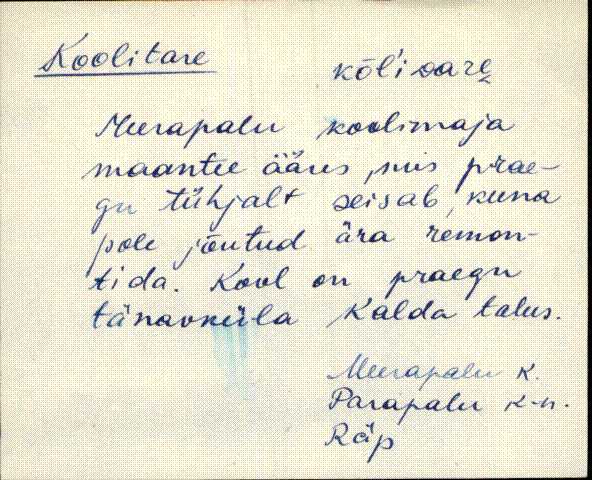 Koolitare
kõl'i ᴅare
Meerapalu koolimaja
maantee ääres, mis prae-
gu tühjalt seisab, kuna
pole jõutud ära remon-
tida. Kool on praegu
tänavküla Kalda talus.
Meerapalu k.
Parapalu k-n.
Räp